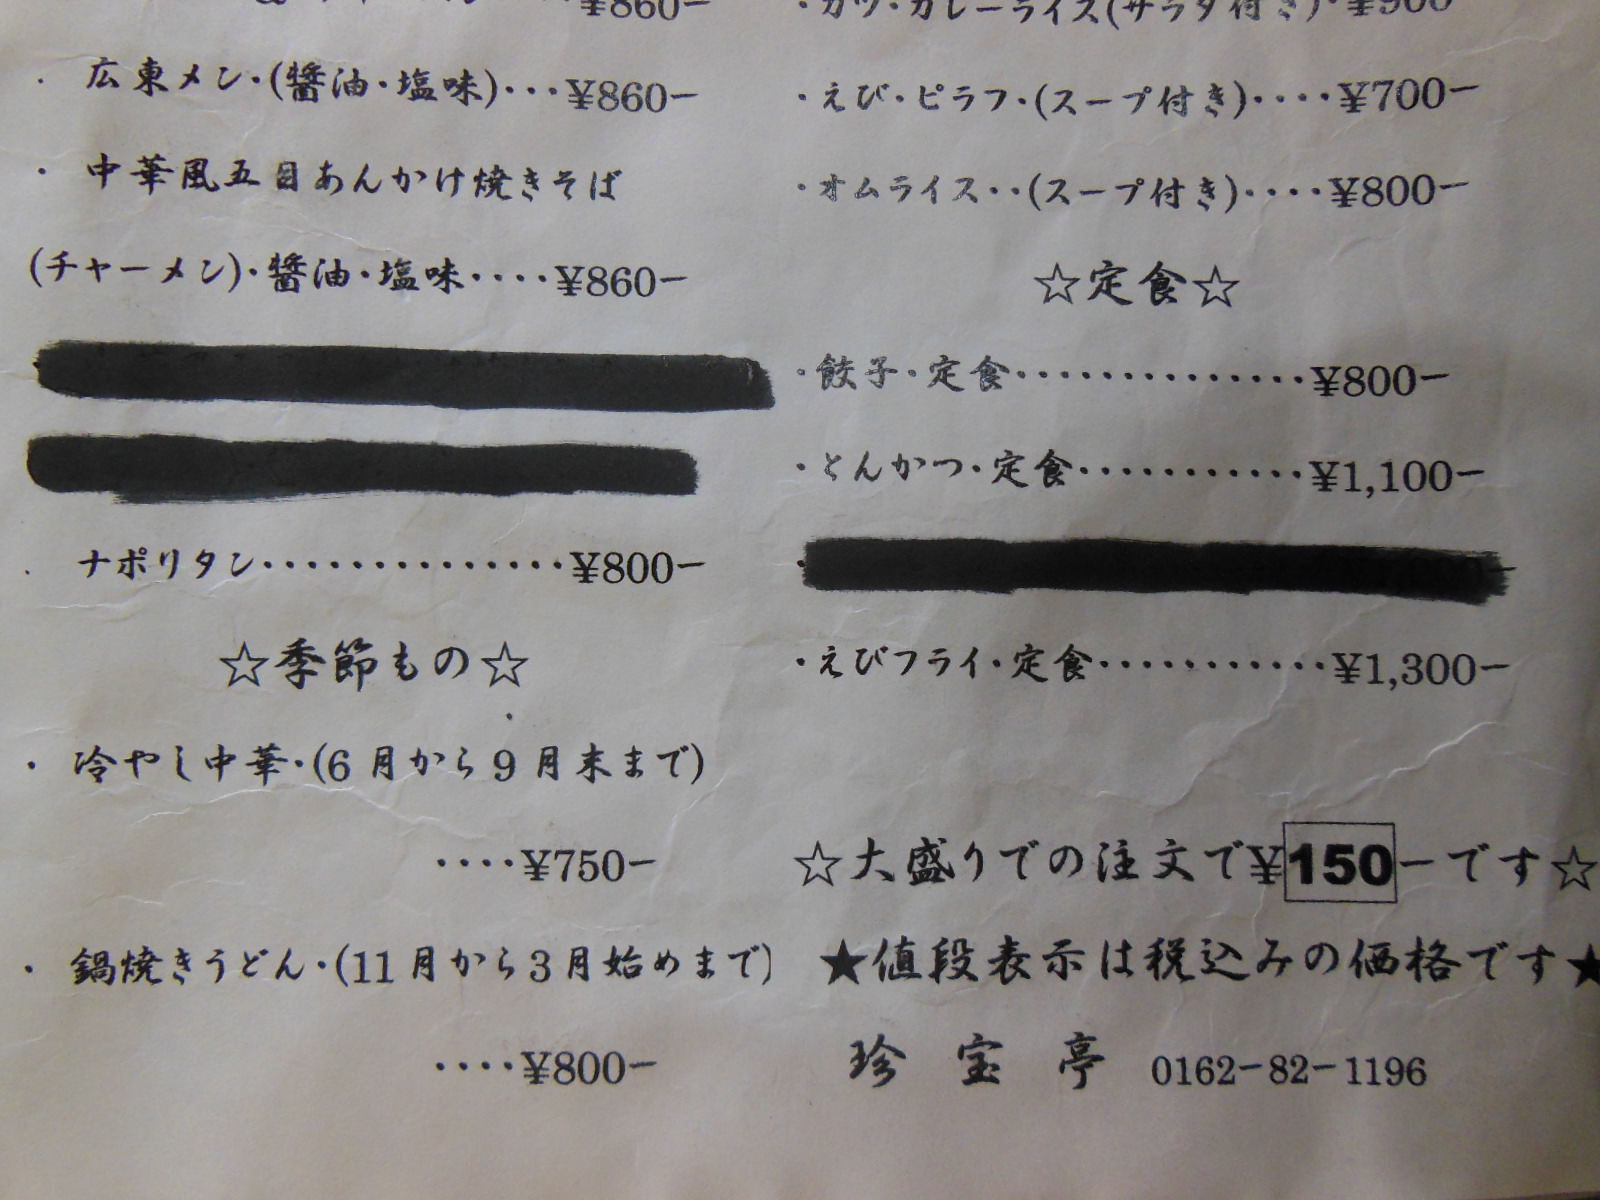 ¥860−
・広東メン・(醬油・塩味)･･･¥860−
・中華風五目あんかけ焼きそば
(チャーメン)・醬油・塩味････¥860−
・ナポリタン･･････････････¥800−
☆季節もの☆
・冷やし中華・(6月から9月末まで)
････¥750−
・鍋焼きうどん・(11月から3月始めまで)
････¥800−
・カツ・カレーライス(サラダ付き)・¥900
・えび・ピラフ・(スープ付き)････¥700−
・オムライス・・(スープ付き)････¥800−
☆定食☆
・餃子・定食･･････････････¥800−
・とんかつ・定食･･･････････¥1,100−
・えびフライ・定食･･･････････¥1,300−
☆大盛りでの注文で¥150−です☆
★値段表示は税込みの価格です★
珍宝亭 0162−82−1196